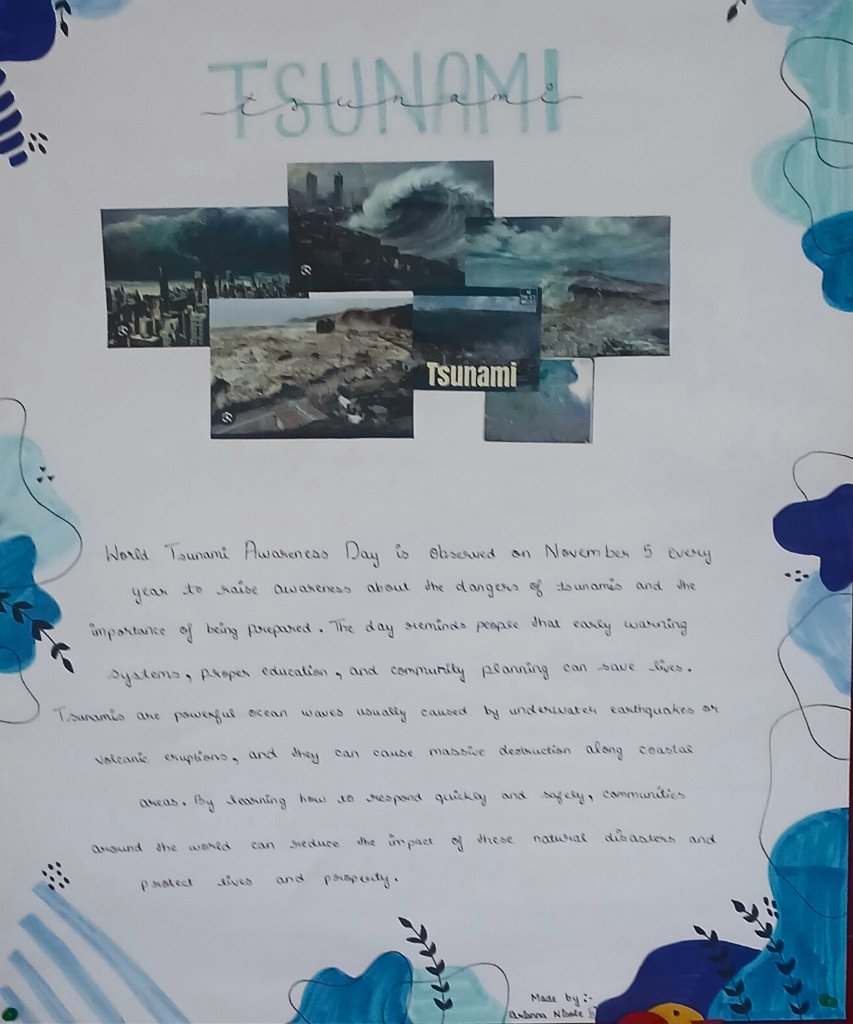 TSUNAMI
tsunami
Tsunami
World Tsunami Awareness Day is observed on November 5 every
year to raise awareness about the dangers of tsunamis and the
importance of being prepared. The day reminds people that early warning
systems, proper education, and community planning can save lives.
Tsunamis are powerful ocean waves usually caused by underwater earthquakes or
volcanic eruptions, and they can cause massive destruction along coastal
areas. By learning how to respond quickly and safely, communities
around the world can reduce the impact of these natural disasters and
protect lives and property.
Made by :-